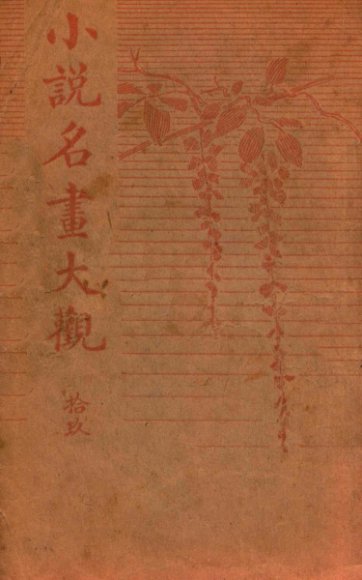 小説名畫大觀
拾玖